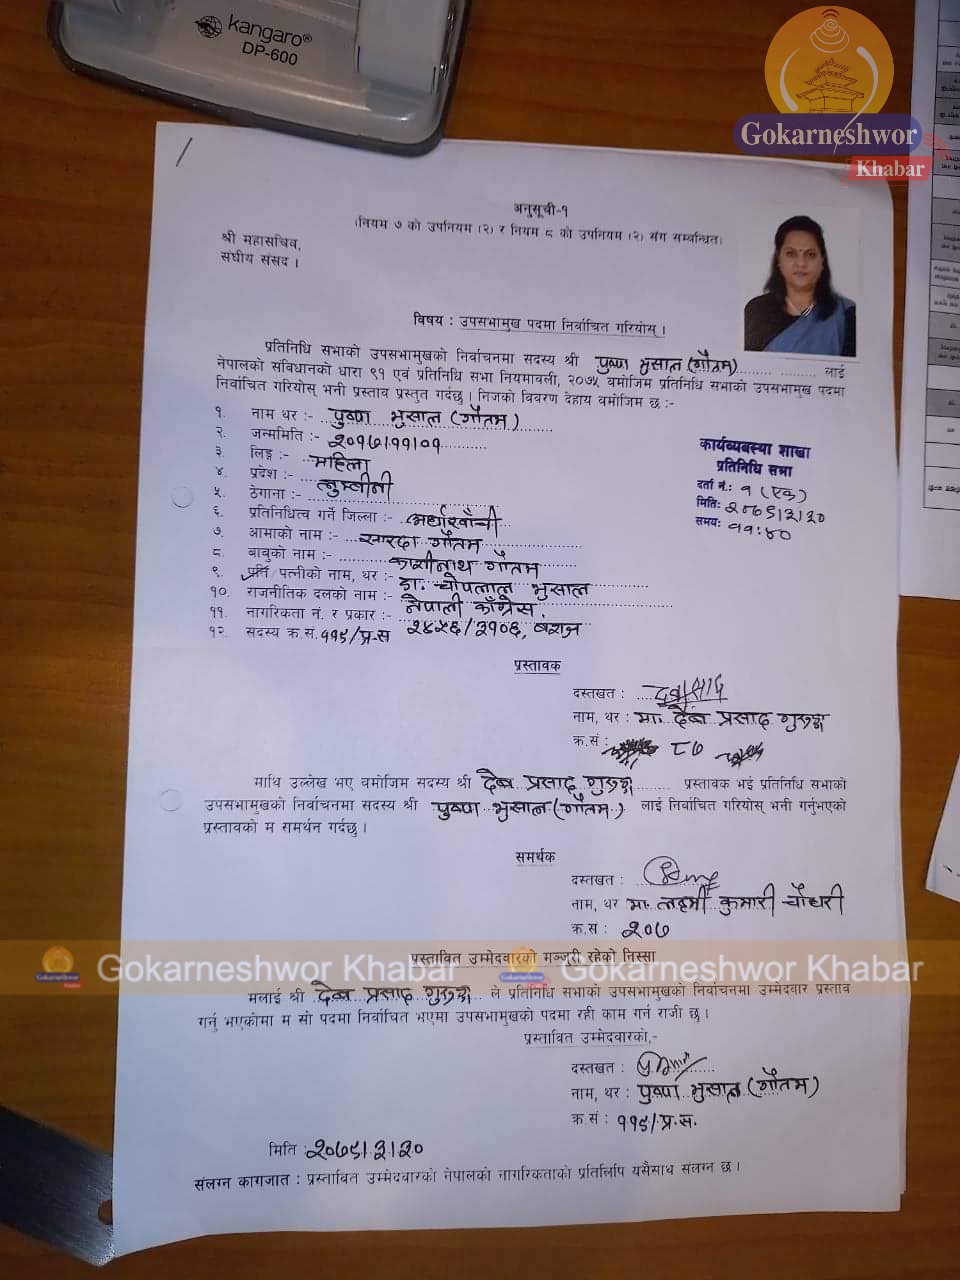 kangaro®
DP-600
Gokarneshwor
Khabar
अनुसूची-१
(नियम ७ को उपनियम (२) र नियम ८ को उपनियम (२) संग सम्बन्धित)
श्री महासचिव,
संघीय संसद ।
विषय : उपसभामुख पदमा निर्वाचित गरियोस् ।
प्रतिनिधि सभाको उपसभामुखको निर्वाचनमा सदस्य श्री पुष्पा भुसाल (गौतम) लाई
नेपालको संविधानको धारा ९१ एवं प्रतिनिधि सभा नियमावली, २०७५ बमोजिम प्रतिनिधि सभाको उपसभामुख पदमा
निर्वाचित गरियोस् भनी प्रस्ताव प्रस्तुत गर्दछु । निजको विवरण देहाय बमोजिम छ :-
१. नाम थर :- पुष्पा भुसाल (गौतम)
२. जन्ममिति :- २०१७।११।०१
३. लिङ्ग :- महिला
४. प्रदेश :- लुम्बीनी
५. ठेगाना :-
६. प्रतिनिधित्व गर्ने जिल्ला :- अर्घाखाँची
७. आमाको नाम :- सारदा गौतम
८. बाबुको नाम :- काशीनाथ गौतम
९. पति/पत्नीको नाम, थर :- डा. चोपलाल भुसाल
१०. राजनीतिक दलको नाम :- नेपाली काँग्रेस.
११. नागरिकता नं. र प्रकार :- २४५६/३१०६, वंशज
१२. सदस्य क्र.सं. ११९/प्र.स
कार्यव्यबस्था शाखा
प्रतिनिधि सभा
दर्ता नं.: १ (एक)
मिति: २०७९।३।३०
समय: ११:४०
प्रस्तावक
दस्तखत :
नाम, थर : मा. देव प्रसाद गुरुङ्ग
क्र.सं : ८७
माथि उल्लेख भए बमोजिम सदस्य श्री देव प्रसाद गुरुङ्ग प्रस्तावक भई प्रतिनिधि सभाको
उपसभामुखको निर्वाचनमा सदस्य श्री पुष्पा भुसाल (गौतम) लाई निर्वाचित गरियोस् भनी गर्नुभएको
प्रस्तावको म समर्थन गर्दछु ।
समर्थक
दस्तखत :
नाम, थर : मा. लक्ष्मी कुमारी चौधरी
क्र.सं : २०७
प्रस्तावित उम्मेदवारको मञ्जुरी रहेको निस्सा
Gokarneshwor Khabar Gokarneshwor Khabar
मलाई श्री देव प्रसाद गुरुङ्ग ले प्रतिनिधि सभाको उपसभामुखको निर्वाचनमा उम्मेदवार प्रस्ताव
गर्नु भएकोमा म सो पदमा निर्वाचित भएमा उपसभामुखको पदमा रही काम गर्न राजी छु ।
प्रस्तावित उम्मेदवारको,-
दस्तखत :
नाम, थर : पुष्पा भुसाल (गौतम)
क्र.सं : ११९/प्र.स.
मिति : २०७९।३।३०
संलग्न कागजात : प्रस्तावित उम्मेदवारको नेपालको नागरिकताको प्रतिलिपि यसैसाथ संलग्न छ ।